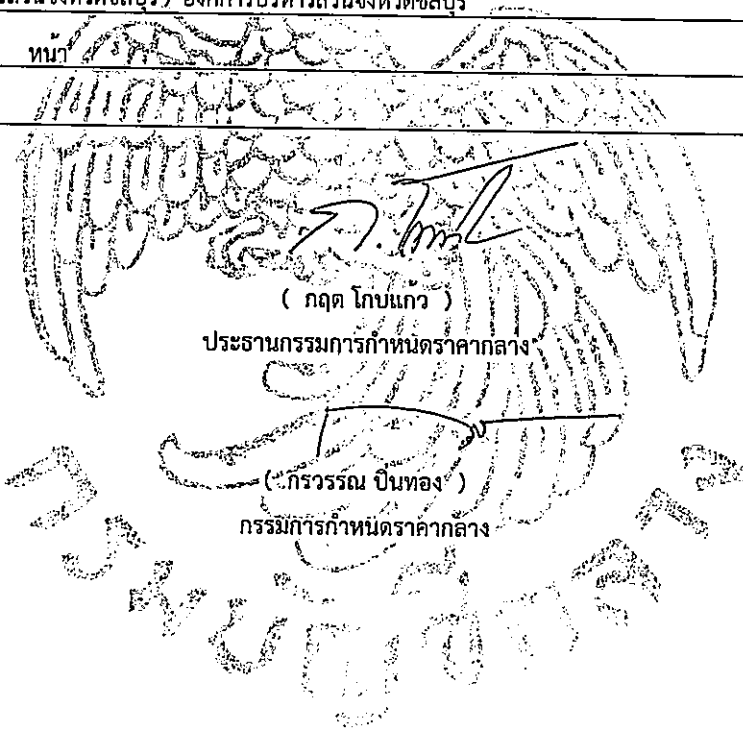 องค์การบริหารส่วนจังหวัดชลบุรี
หน้า
( กฤต โกบแก้ว )
ประธานกรรมการกำหนดราคากลาง
( กรวรรณ ปิ่นทอง )
กรรมการกำหนดราคากลาง
กรมบัญชีกลาง